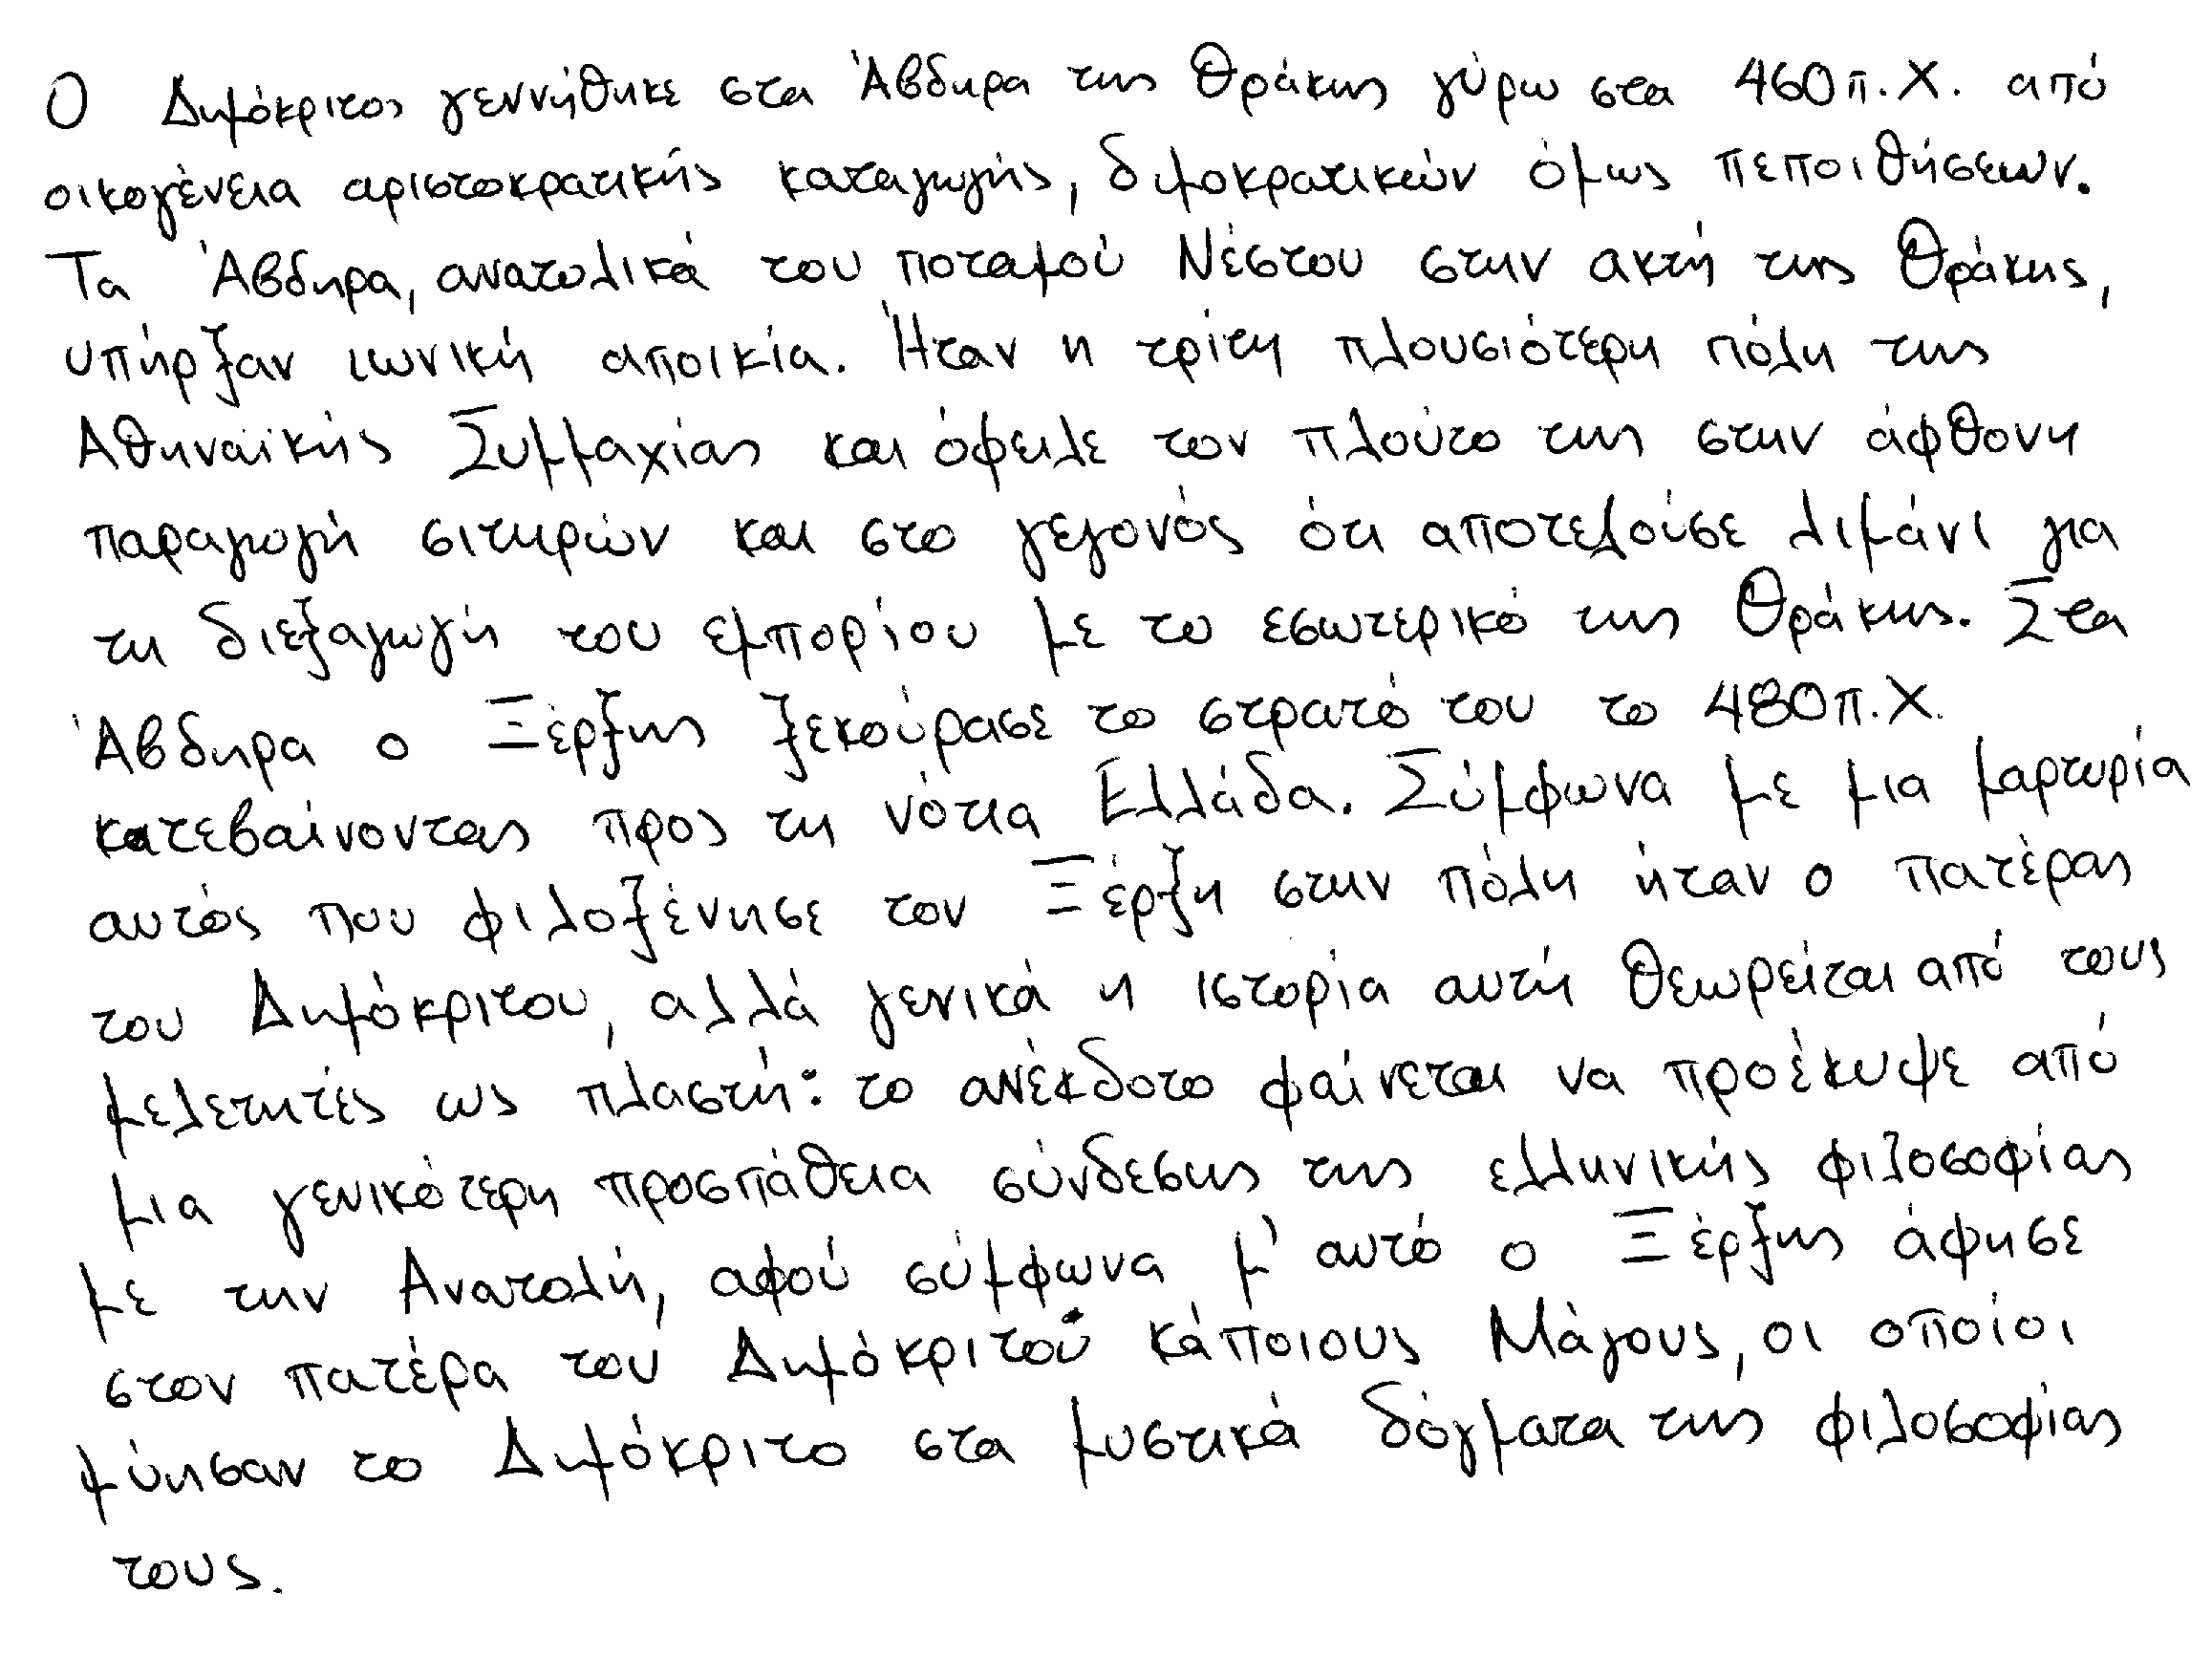 Ο Δημόκριτος γεννήθηκε στα Άβδηρα της Θράκης γύρω στα 460 π.Χ. από
οικογένεια αριστοκρατικής καταγωγής, διμοκρατικών όμως πεποιθήσεων.
Τα Άβδηρα, ανατολικά του ποταμού Νέστου στην ακτή της Θράκης,
υπήρξαν ιωνική αποικία. Ήταν η τρίτη πλουσιότερη πόλη της
Αθηναϊκής Συμμαχίας και όφειλε τον πλούτο της στην άφθονη
παραγωγή σιτηρών και στο γεγονός ότι αποτελούσε λιμάνι για
τη διεξαγωγή του εμπορίου με το εσωτερικό της Θράκης. Στα
Άβδηρα ο Ξέρξης ξεκούρασε το στρατό του το 480 π.Χ.
κατεβαίνοντας προς τη νότια Ελλάδα. Σύμφωνα με μια μαρτυρία
αυτός που φιλοξένησε τον Ξέρξη στην πόλη ήταν ο πατέρας
του Δημόκριτου, αλλά γενικά η ιστορία αυτή θεωρείται από τους
μελετητές ως πλαστή: το ανέκδοτο φαίνεται να προέκυψε από
μια γενικότερη προσπάθεια σύνδεσης της ελληνικής φιλοσοφίας
με την Ανατολή, αφού σύμφωνα μ' αυτό ο Ξέρξης άφησε
στον πατέρα του Δημόκριτού κάποιους Μάγους, οι οποίοι
μύησαν το Δημόκριτο στα μυστικά δόγματα της φιλοσοφίας
τους.